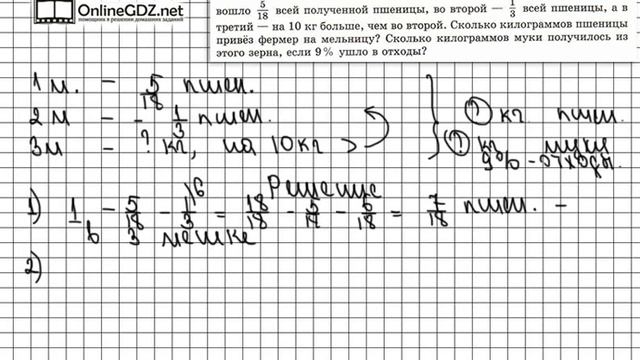 OnlineGDZ.net
ПОДРОБНЫЕ РЕШЕНИЯ ДОМАШНИХ ЗАДАНИЙ
вошло 5/18 всей полученной пшеницы, во второй — 1/3 всей пшеницы, а в
третий — на 10 кг больше, чем во второй. Сколько килограммов пшеницы
привёз фермер на мельницу? Сколько килограммов муки получилось из
этого зерна, если 9% ушло в отходы?
1 м. – 5/18 пшен.
2 м – 1/3 пшен.
3 м – ? кг, на 10 кг >
? кг пшен.
? кг муки
9% – отходы.
Решение
1) 1 – 5/18 – 1/3 \6 = 18/18 – 5/18 – 6/18 = 7/18 пшен. –
в 3 мешке
2)